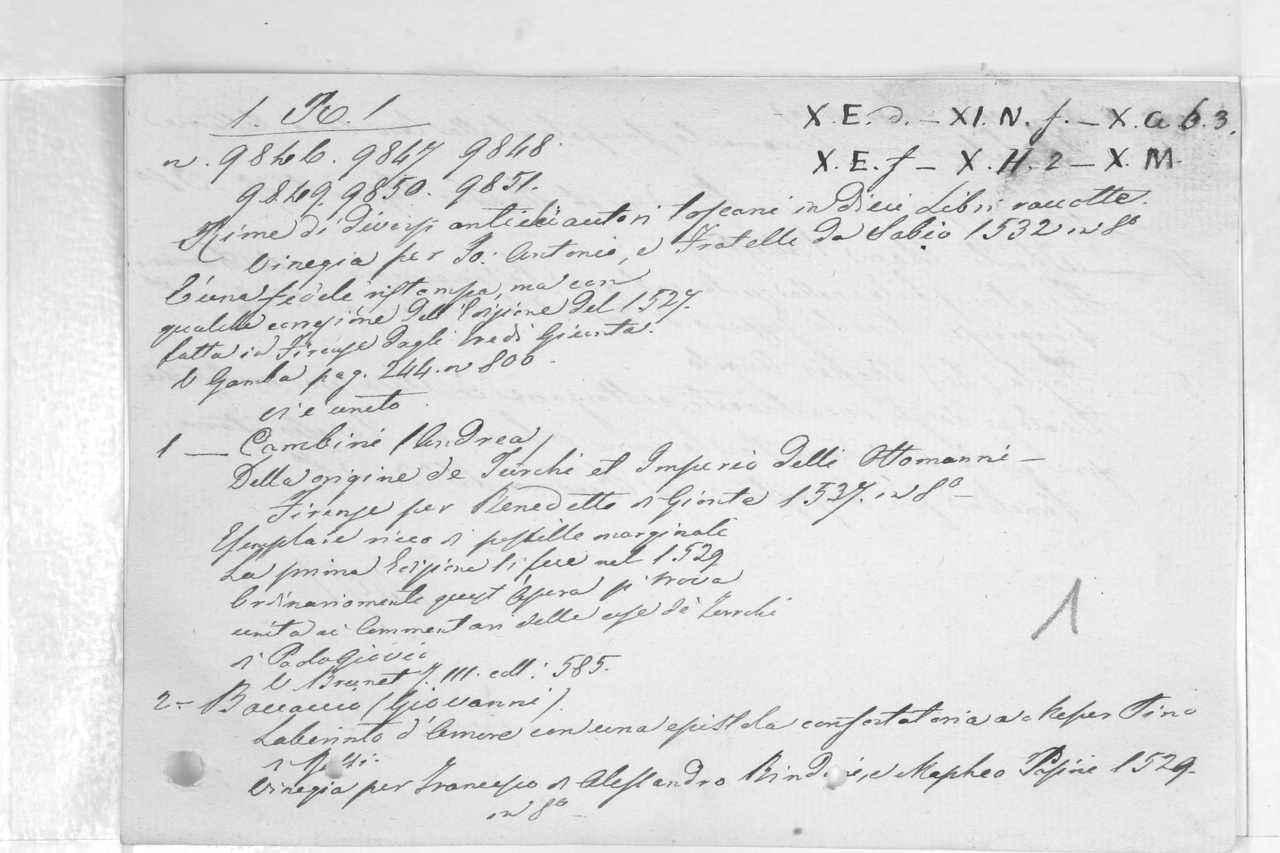 1. R. 1
X. E. d. — XI. N. f. — X. a b. 3.
n. 9846. 9847 9848.
X. E. f — X. H. 2 — X M.
9849. 9850. 9851.
Rime di diversi antichi autori Toscani in dieci Libri raccolte.
Vinegia per Jo: Antonio, e Fratelli da Sabio 1532 in 8º
È una fedele ristampa, ma con
qualche correzione dell'Edizione del 1527.
fatta in Firenze dagli Eredi Giunta.
V Gamba pag. 244. n 800.
Vi è unito
1 — Cambini (Andrea)
Della origine de Turchi et Imperio delli Ottomanni —
Firenze per Benedetto di Gionta 1537. in 8º —
Esemplare ricco di postille marginali
La prima Edizione si fece nel 1529
Ordinariamente quest'Opera si trova
unita ai Commentari delle cose de Turchi
di Paolo Giovio
V Brunet T. III. coll: 585.
2 — Boccaccio (Giovanni).
Laberinto d'Amore con una epistola confortatoria a Messer Pino
di
Vinegia per Francesco di Alessandro Bindoni, e Mapheo Pasini 1529.
in 8º —
1